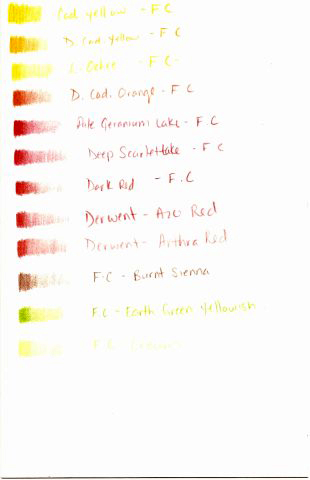 Cad yellow - F C
D. Cad yellow - F C
L. Ochre - F C
D. Cad. Orange - F C
Pale Geranium Lake - F.C
Deep Scarlet lake - F C
Dark Red - F.C
Derwent - Azo Red
Derwent - Anthra Red
F.C - Burnt Sienna
F.C - Earth Green Yellowish
F.C - Cream